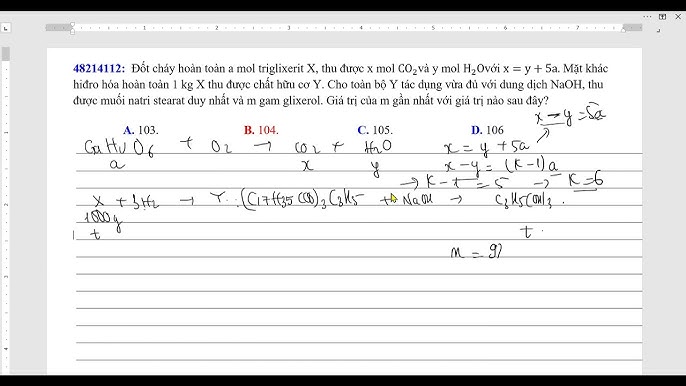 48214112: Đốt cháy hoàn toàn a mol triglixerit X, thu được x mol CO2và y mol H2Ovới x = y + 5a. Mặt khác
hiđro hóa hoàn toàn 1 kg X thu được chất hữu cơ Y. Cho toàn bộ Y tác dụng vừa đủ với dung dịch NaOH, thu
được muối natri stearat duy nhất và m gam glixerol. Giá trị của m gần nhất với giá trị nào sau đây?
x - y = 5a
A. 103. B. 104. C. 105. D. 106
CnHuO6 + O2 → CO2 + H2O x = y + 5a
a x y x - y = (k-1)a
→ k - 1 = 5 → k = 6
X + 3H2 → Y : (C17H35COO)3C3H5 + NaOH → C3H5(OH)3.
1000g
t t
m = 92